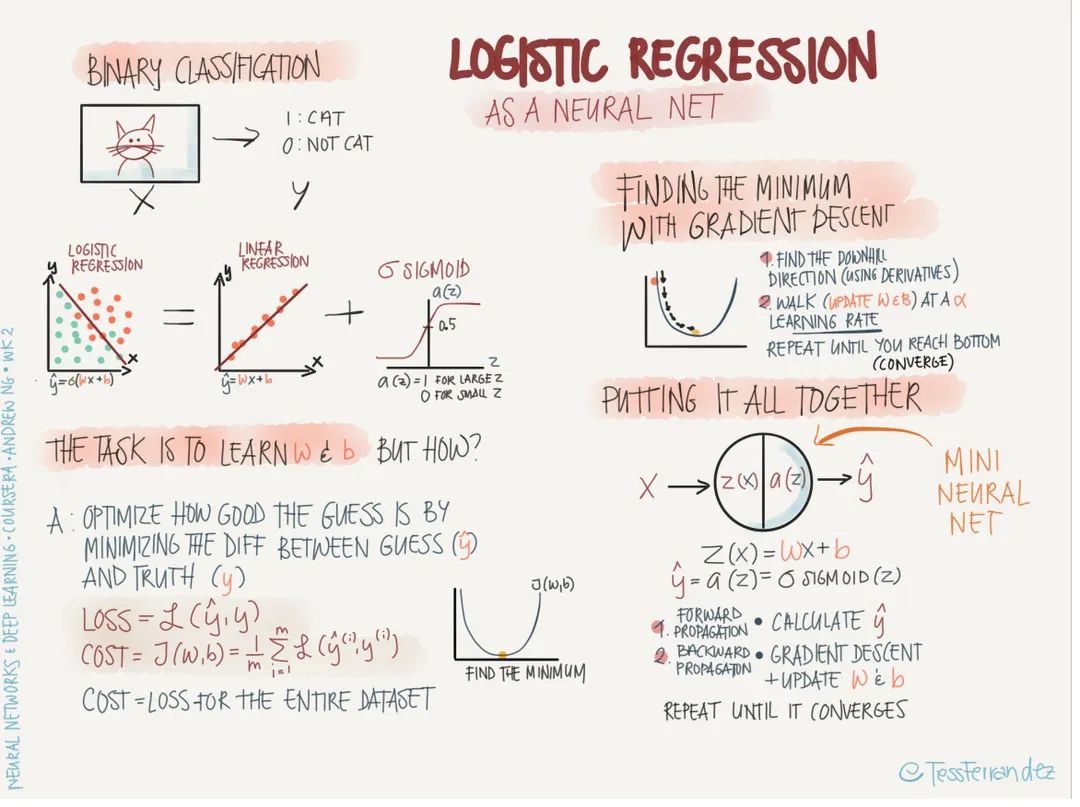 LOGISTIC REGRESSION
AS A NEURAL NET
BINARY CLASSIFICATION
1: CAT
0: NOT CAT
X
Y
LOGISTIC
REGRESSION
y
x
ŷ=σ(wx+b)
=
LINEAR
REGRESSION
y
x
ŷ=wx+b
+
σ SIGMOID
a(z)
0.5
z
a(z)=1 FOR LARGE z
0 FOR SMALL z
THE TASK IS TO LEARN w & b BUT HOW?
A: OPTIMIZE HOW GOOD THE GUESS IS BY
MINIMIZING THE DIFF BETWEEN GUESS (ŷ)
AND TRUTH (y)
LOSS = ℒ(ŷ,y)
COST = J(w,b) = 1/m ∑ᵢ₌₁ᵐ ℒ(ŷ⁽ⁱ⁾,y⁽ⁱ⁾)
COST = LOSS FOR THE ENTIRE DATASET
J(w,b)
FIND THE MINIMUM
FINDING THE MINIMUM
WITH GRADIENT DESCENT
1. FIND THE DOWNHILL
DIRECTION (USING DERIVATIVES)
2. WALK (UPDATE W & B) AT A α
LEARNING RATE
REPEAT UNTIL YOU REACH BOTTOM
(CONVERGE)
PUTTING IT ALL TOGETHER
X → z(x) a(z) → ŷ
MINI
NEURAL
NET
Z(x) = wx+b
ŷ = a(z) = σ SIGMOID(z)
1. FORWARD
PROPAGATION • CALCULATE ŷ
2. BACKWARD
PROPAGATION • GRADIENT DESCENT
+UPDATE w & b
REPEAT UNTIL IT CONVERGES
NEURAL NETWORKS & DEEP LEARNING • COURSERA • ANDREW NG • WK 2
@TessFerrandez